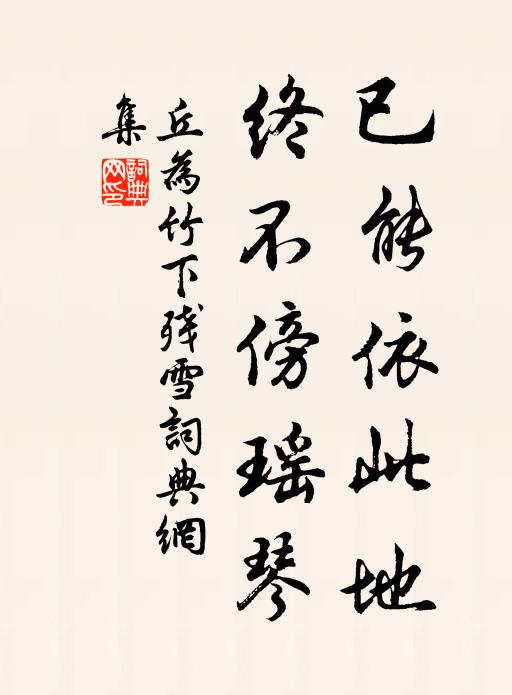 已能依此地
終不傍瑶琴
丘為竹下殘雪詞典網
集
詞典網印